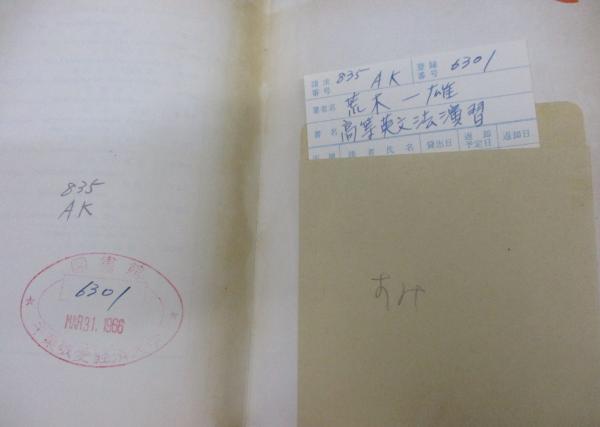 835
AK
図書館
6301
MAR 31. 1966
請求番号 835 AK 登録番号 6301
著者名 荒木一雄
書名 高等英文法演習
貸出日 返却予定日 返却日